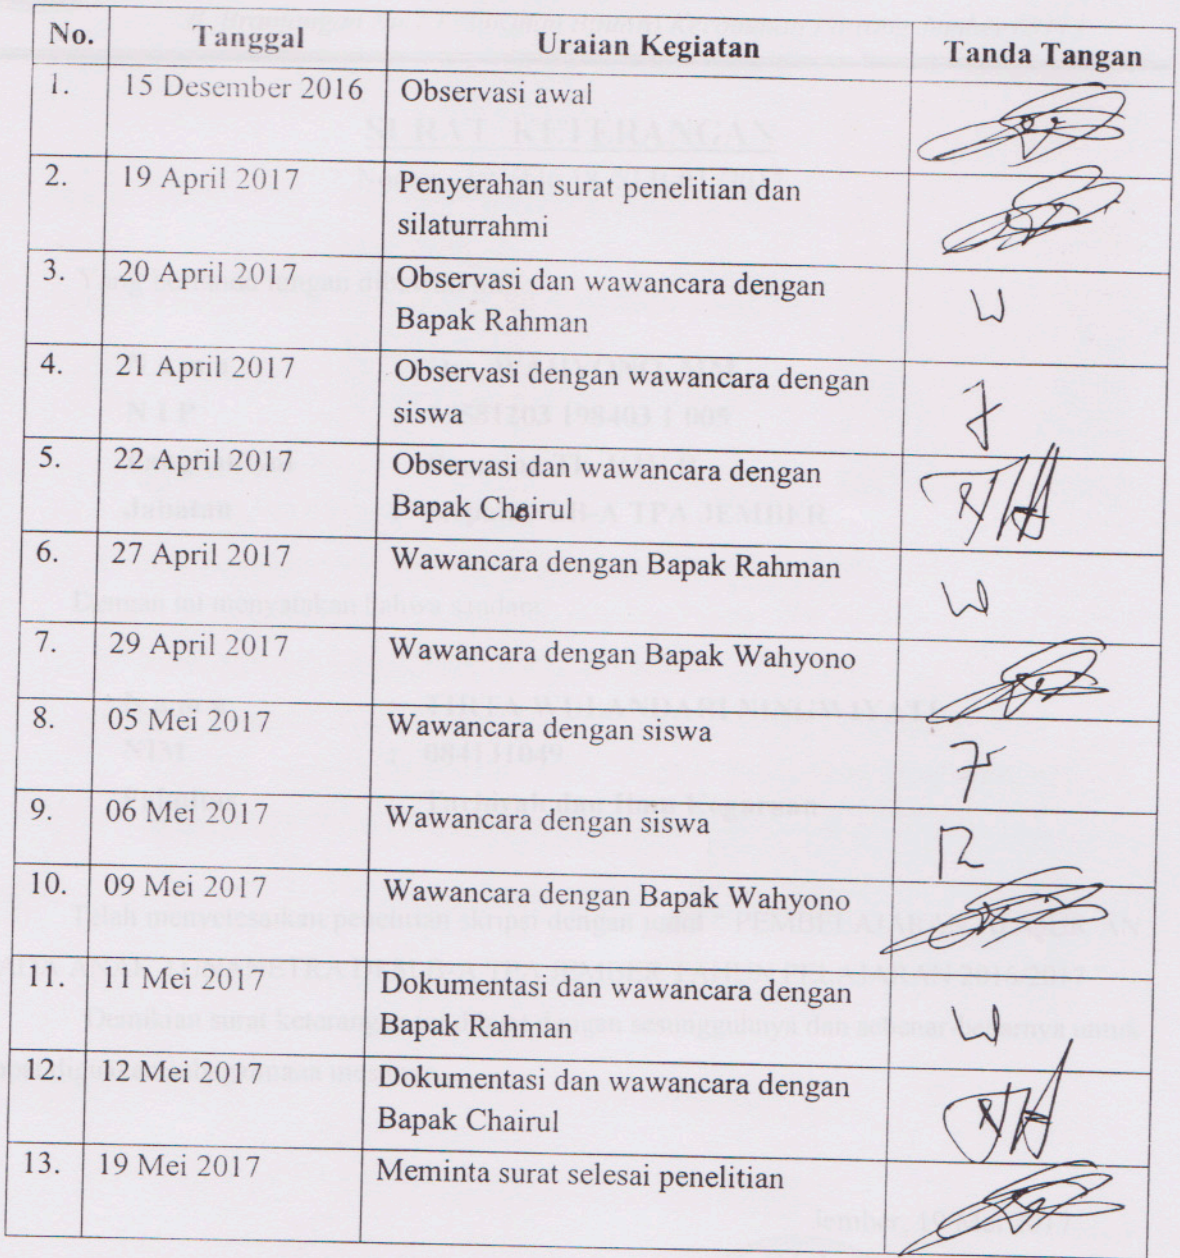 No. Tanggal Uraian Kegiatan Tanda Tangan
1. 15 Desember 2016 Observasi awal
2. 19 April 2017 Penyerahan surat penelitian dan
silaturrahmi
3. 20 April 2017 Observasi dan wawancara dengan
Bapak Rahman
W
4. 21 April 2017 Observasi dengan wawancara dengan
siswa
5. 22 April 2017 Observasi dan wawancara dengan
Bapak Chairul
6. 27 April 2017 Wawancara dengan Bapak Rahman
W
7. 29 April 2017 Wawancara dengan Bapak Wahyono
8. 05 Mei 2017 Wawancara dengan siswa
9. 06 Mei 2017 Wawancara dengan siswa
R
10. 09 Mei 2017 Wawancara dengan Bapak Wahyono
11. 11 Mei 2017 Dokumentasi dan wawancara dengan
Bapak Rahman
W
12. 12 Mei 2017 Dokumentasi dan wawancara dengan
Bapak Chairul
13. 19 Mei 2017 Meminta surat selesai penelitian